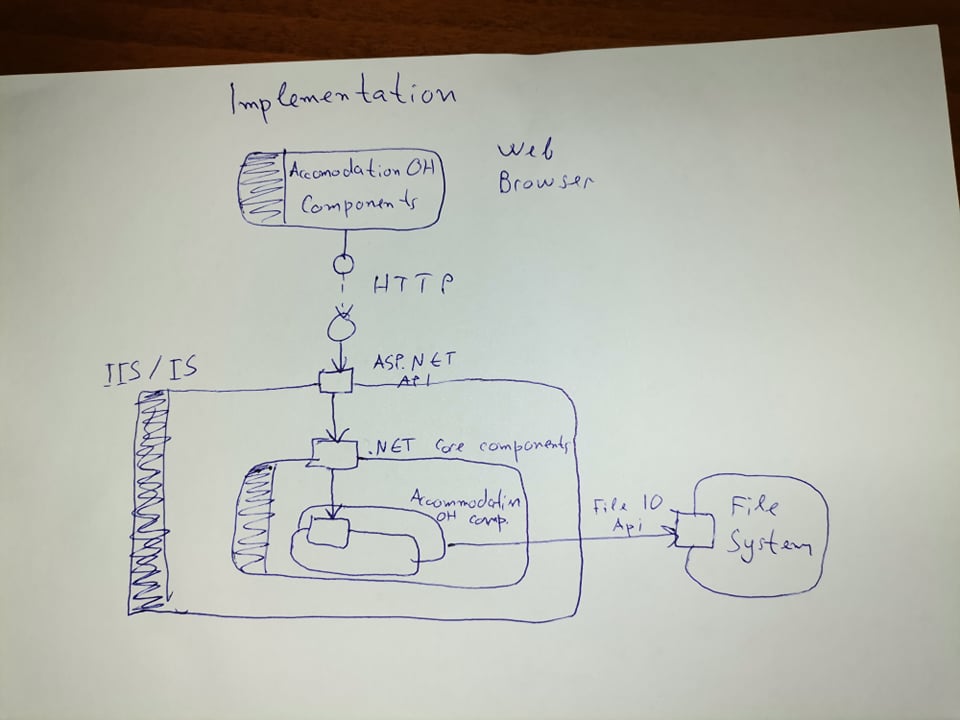 Implementation
Accomodation OH
Components
Web
Browser
HTTP
IIS / IS
ASP.NET
API
.NET Core components
Accommodatin
OH comp.
File IO
Api
File
System